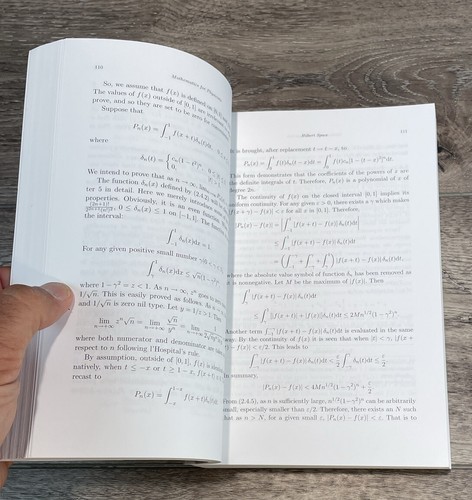 110
Mathematics for Physicists
So, we assume that f(x) is defined on [0, 1]
The values of f(x) outside of [0, 1] are
prove, and so they are set to be zero for
Suppose that
P_n(x) = ∫_{-1}^{1} f(x+t)δ_n(t)dt,
where
δ_n(t) = { c_n(1−t²)^n,
We intend to prove that as n → ∞,
The function δ_n(x) defined by (2.4.2) will
ter 5 in detail. Here we merely introduce some
properties. Obviously, it is an even function
0 ≤ δ_n(x) ≤ 1 on [−1, 1]. The function
the interval:
∫_{-1}^{1} δ_n(x)dx = 1.
For any given positive small number γ(0 <
∫_γ^1 δ_n(x)dx ≤ √n(1−γ²)^n
where 1 − γ² = z < 1. As n → ∞, z^n goes to zero
1/√n. This is easily proved as follows.
and 1/√n is zero nil type. Let y = 1/z > 1 then
lim_{n→+∞} z^n √n = lim_{n→+∞} √n/y^n = lim_{n→+∞} 1/
where both numerator and denominator are
respect to n following l'Hospital's rule.
By assumption, outside of [0, 1], f(x) is
natively, when t ≤ −x or t ≥ 1 − x, f(x+t)
recast to
P_n(x) = ∫_{-x}^{1-x} f(x+t)δ_n(t)
Hilbert Space
111
It is brought, after replacement t → t − x, to:
P_n(x) = ∫_0^1 f(t)δ_n(t−x)dt = ∫_0^1 f(t)c_n[1−(t−x)²]^n dt.
This form demonstrates that the coefficients of the powers of x are
the definite integrals of t. Therefore, P_n(x) is a polynomial of x of
degree 2n.
The continuity of f(x) on the closed interval [0, 1] implies its
uniform continuity. For any given ε > 0, there exists a γ which makes
|f(x+γ) − f(x)| < ε for all x in [0, 1]. Therefore,
|P_n(x) − f(x)| = |∫_{-1}^{1} [f(x+t) − f(x)]δ_n(t)dt|
≤ ∫_{-1}^{1} |f(x+t) − f(x)|δ_n(t)dt
= (∫_{-1}^{-γ} + ∫_{-γ}^{γ} + ∫_γ^1) |f(x+t) − f(x)|δ_n(t)dt,
where the absolute value symbol of function δ_n has been removed as
it is nonnegative. Let M be the maximum of |f(x)|. Then
∫_γ^1 |f(x+t) − f(x)|δ_n(t)dt
≤ ∫_γ^1 [|f(x+t)| + |f(x)|]δ_n(t)dt ≤ 2Mn^{1/2}(1−γ²)^n.
Another term ∫_{-1}^{-γ} |f(x+t) − f(x)|δ_n(t)dt is evaluated in the same
way. By the continuity of f(x) it is seen that when |t| < γ, |f(x+
t) − f(x)| < ε/2. This leads to
∫_{-γ}^{γ} |f(x+t) − f(x)|δ_n(t)dt < ε/2 ∫_{-γ}^{γ} δ_n(t)dt ≤ ε/2.
In summary,
|P_n(x) − f(x)| < 4Mn^{1/2}(1−γ²)^n + ε/2.
From (2.4.5), as n is sufficiently large, n^{1/2}(1−γ²)^n can be arbitrarily
small, especially smaller than ε/2. Therefore, there exists an N such
that as n > N, for a given small ε, |P_n(x) − f(x)| < ε. That is to